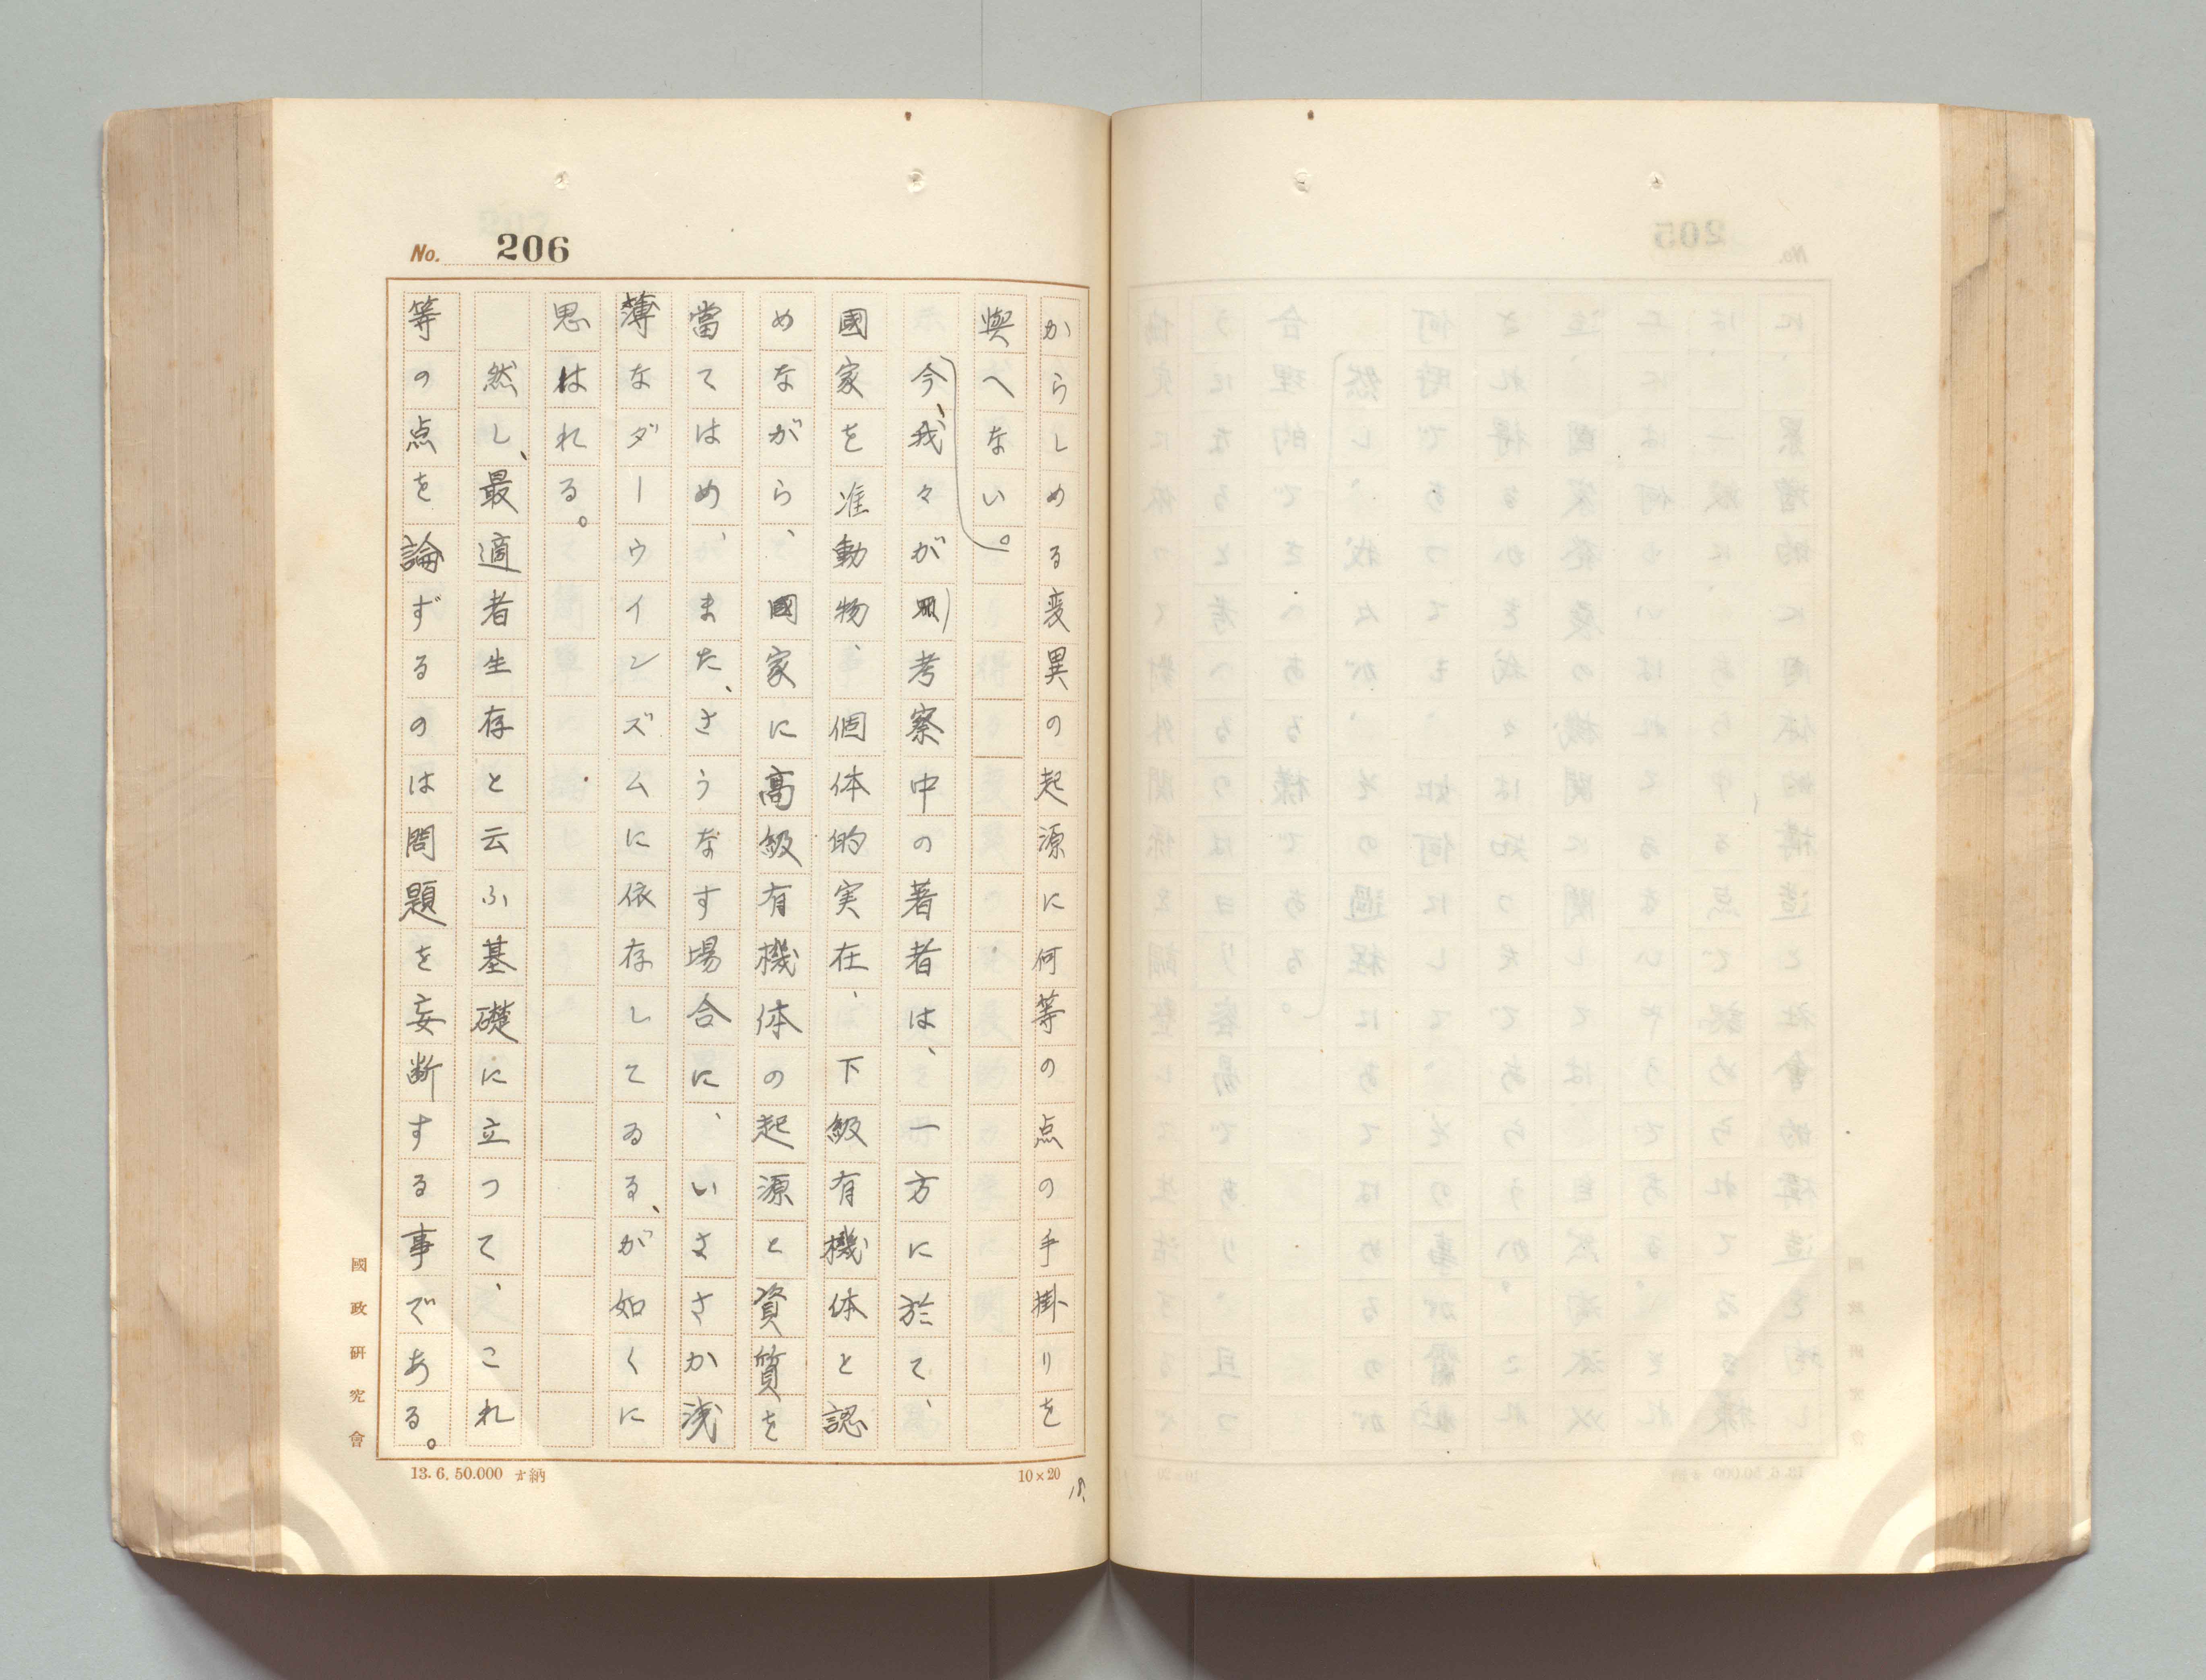 No. 206
からしめる変異の起源に何等の点の手掛りを
與へない。
今、我々が考察中の著者は、一方に於て、
國家を准動物、個体的実在、下級有機体と認
めながら、國家に高級有機体の起源と資質を
當てはめ、また、さうなす場合に、いさゝか浅
薄なダーウインズムに依存してゐる、が如くに
思はれる。
然し、最適者生存と云ふ基礎に立つて、これ
等の点を論ずるのは問題を妄断する事である。
國政研究會
13.6.50.000 才納
10×20